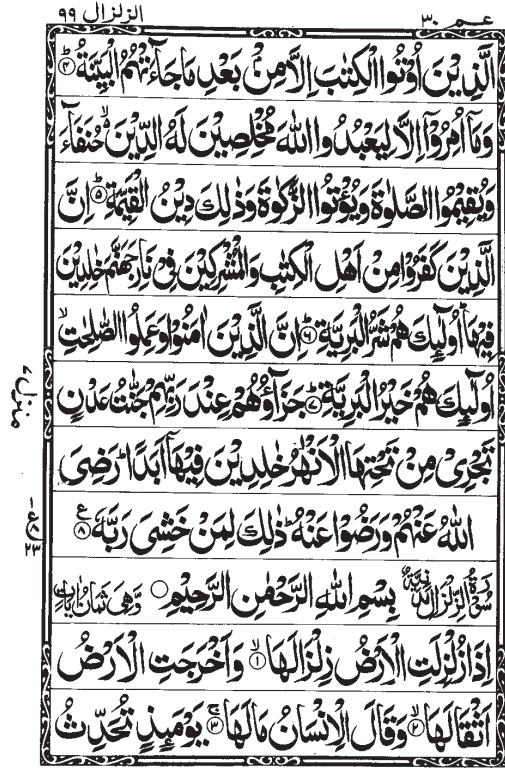 عم ٣٠
الزلزال ٩٩
الَّذِيْنَ اُوْتُوا الْكِتٰبَ اِلَّا مِنْۢ بَعْدِ مَا جَآءَتْهُمُ الْبَيِّنَةُؕ۝۴
وَمَاۤ اُمِرُوْۤا اِلَّا لِيَعْبُدُوا اللّٰهَ مُخْلِصِيْنَ لَهُ الدِّيْنَ ۙ۬ حُنَفَآءَ
وَيُقِيْمُوا الصَّلٰوةَ وَيُؤْتُوا الزَّكٰوةَ وَذٰلِكَ دِيْنُ الْقَيِّمَةِؕ۝۵ اِنَّ
الَّذِيْنَ كَفَرُوْا مِنْ اَهْلِ الْكِتٰبِ وَالْمُشْرِكِيْنَ فِيْ نَارِ جَهَنَّمَ خٰلِدِيْنَ
فِيْهَاؕ اُولٰٓئِكَ هُمْ شَرُّ الْبَرِيَّةِؕ۝۶ اِنَّ الَّذِيْنَ اٰمَنُوْا وَعَمِلُوا الصّٰلِحٰتِ ۙ
اُولٰٓئِكَ هُمْ خَيْرُ الْبَرِيَّةِؕ۝۷ جَزَآؤُهُمْ عِنْدَ رَبِّهِمْ جَنّٰتُ عَدْنٍ
تَجْرِيْ مِنْ تَحْتِهَا الْاَنْهٰرُ خٰلِدِيْنَ فِيْهَاۤ اَبَدًاؕ رَضِيَ
اللّٰهُ عَنْهُمْ وَرَضُوْا عَنْهُؕ ذٰلِكَ لِمَنْ خَشِيَ رَبَّهٗ۝۸ ع
سُوْرَةُ الزِّلْزَالِ مَدَنِيَّةٌ بِسْمِ اللّٰهِ الرَّحْمٰنِ الرَّحِيْمِ ۝ وَهِيَ ثَمَانُ اٰيَاتٍ
اِذَا زُلْزِلَتِ الْاَرْضُ زِلْزَالَهَاۙ۝۱ وَاَخْرَجَتِ الْاَرْضُ
اَثْقَالَهَاۙ۝۲ وَقَالَ الْاِنْسَانُ مَا لَهَاۚ۝۳ يَوْمَئِذٍ تُحَدِّثُ
منزل ۷